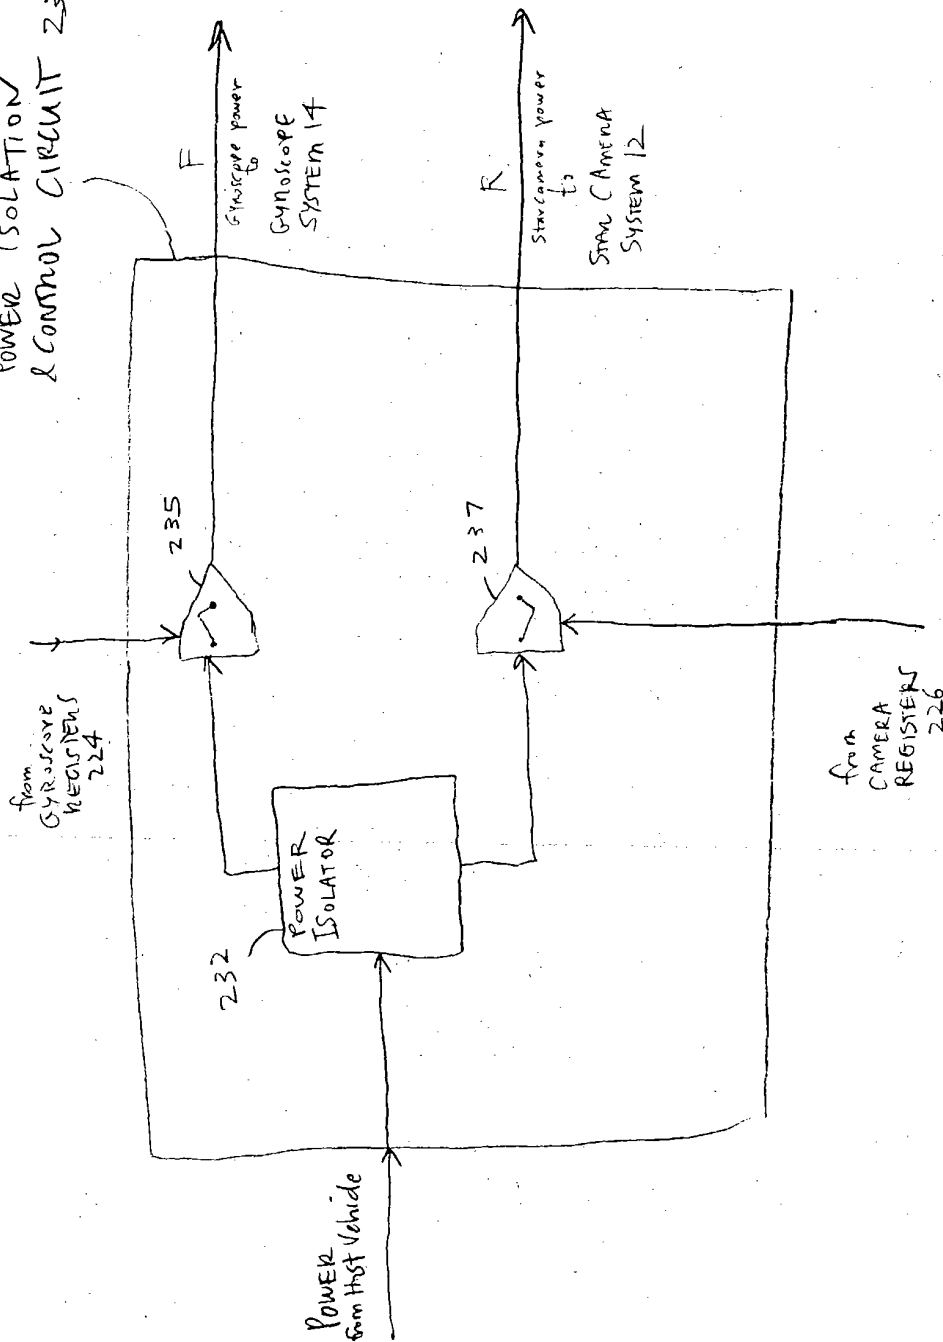 POWER ISOLATION
& CONTROL CIRCUIT
F
Gyroscope power
to
GYROSCOPE
SYSTEM 14
R
Star camera power
to
STAR CAMERA
SYSTEM 12
235
237
from
GYROSCOPE
REGISTERS
224
from
CAMERA
REGISTERS
226
POWER
ISOLATOR
232
POWER
from Host Vehicle